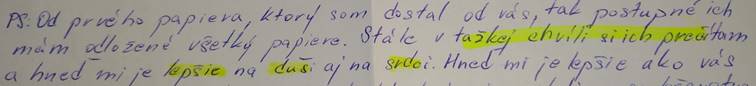 PS: Od prvého papiera, ktorý som dostal od vás, tak postupne ich
mám odložené všetky papiere. Stále v ťaškej chvíli si ich prečítam
a hneď mi je lepšie na duši aj na srdci. Hneď mi je lepšie ako vás